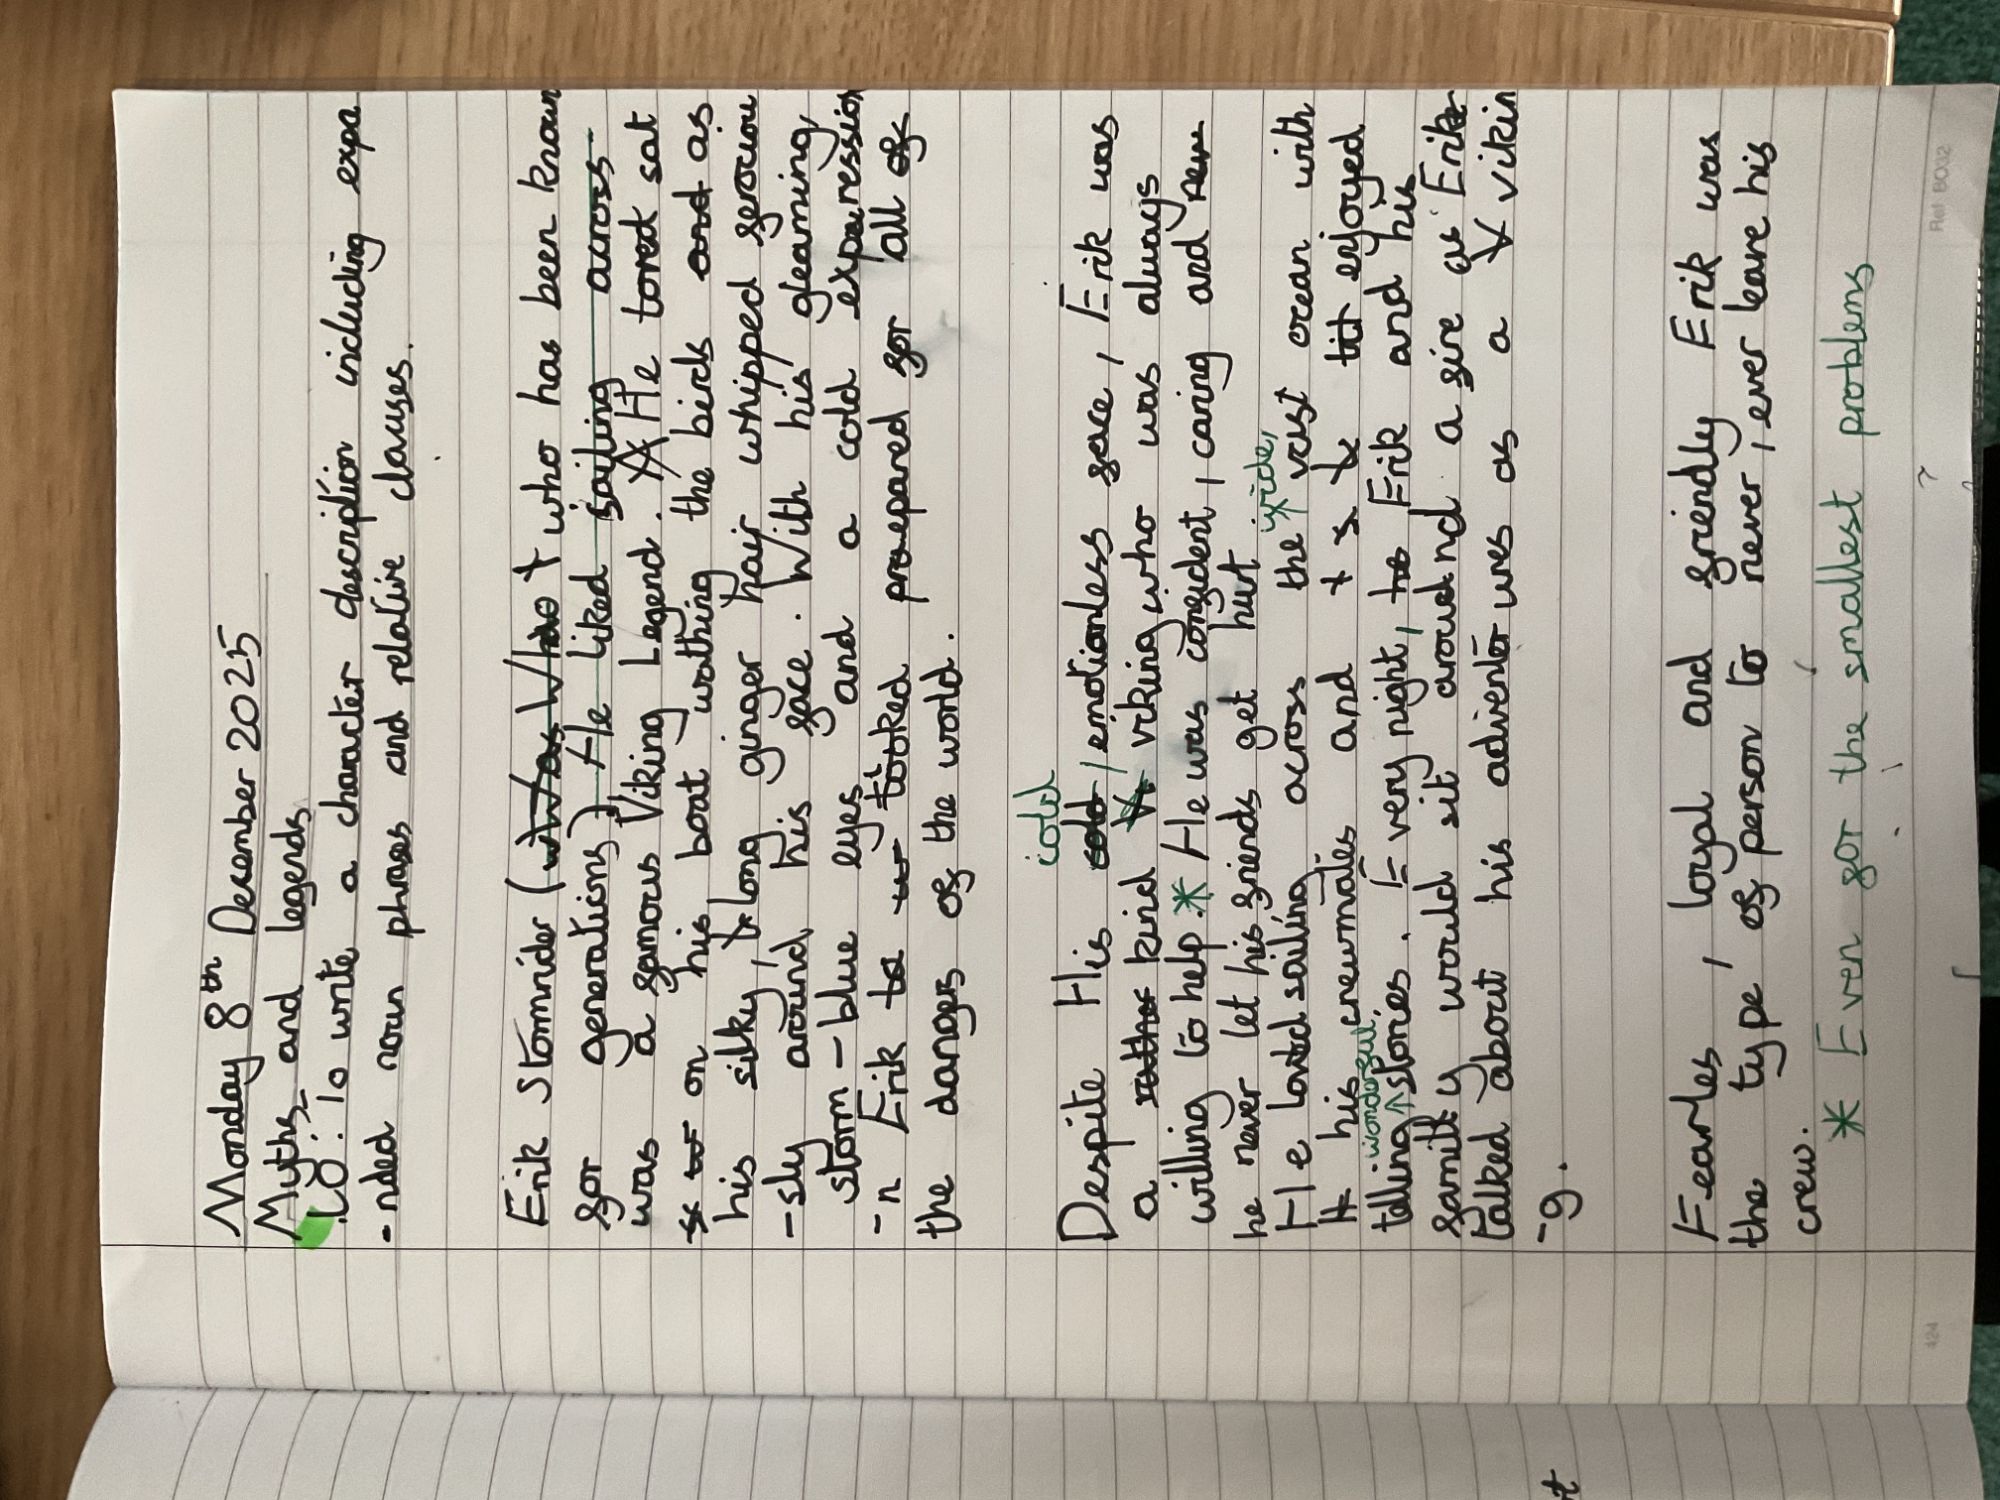 Monday 8th Desember 2025
Myths and legends
LO: To write a character description including expa
-nded noun phrases and relative clauses.
Erik Stormrider ( who has been known
for generations) He liked sailing across
was a famous Viking Legend. He loved sat
on his boat wathing the birds and as
his silky, long ginger hair whipped ferociou
-sly around his face. With his gleaming,
storm-blue eyes and a cold expression
-n Erik looked prepared for all of
the danges of the world.
cold
Despite His cold, emotionless face, Erik was
a rather kind viking who was always
willing to help.* He was confident, caring and
he never let his friends get hurt.
wide,
He loved sailing across the vast ocean with
his crewmates and enjoyed
wonderful
telling stories. Every night, Erik and his
family would sit around a fire as Erik
talked about his adventures as a Vikin
-g.
Fearles, loyal and friendly Erik was
the type of person to never, ever leave his
crew.
* Even for the smallest problems
Ref BO02
424